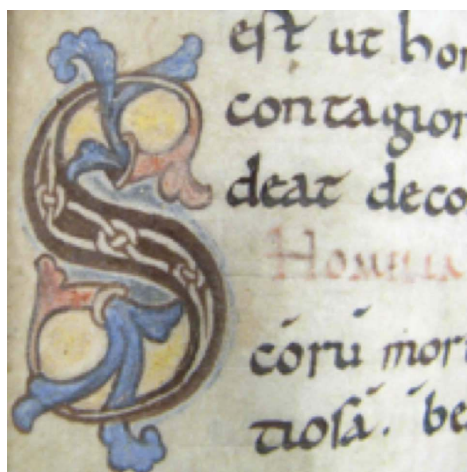 est ut hon
contagion
deat deco
Homelia
S
cōrū mor
tiosā. be